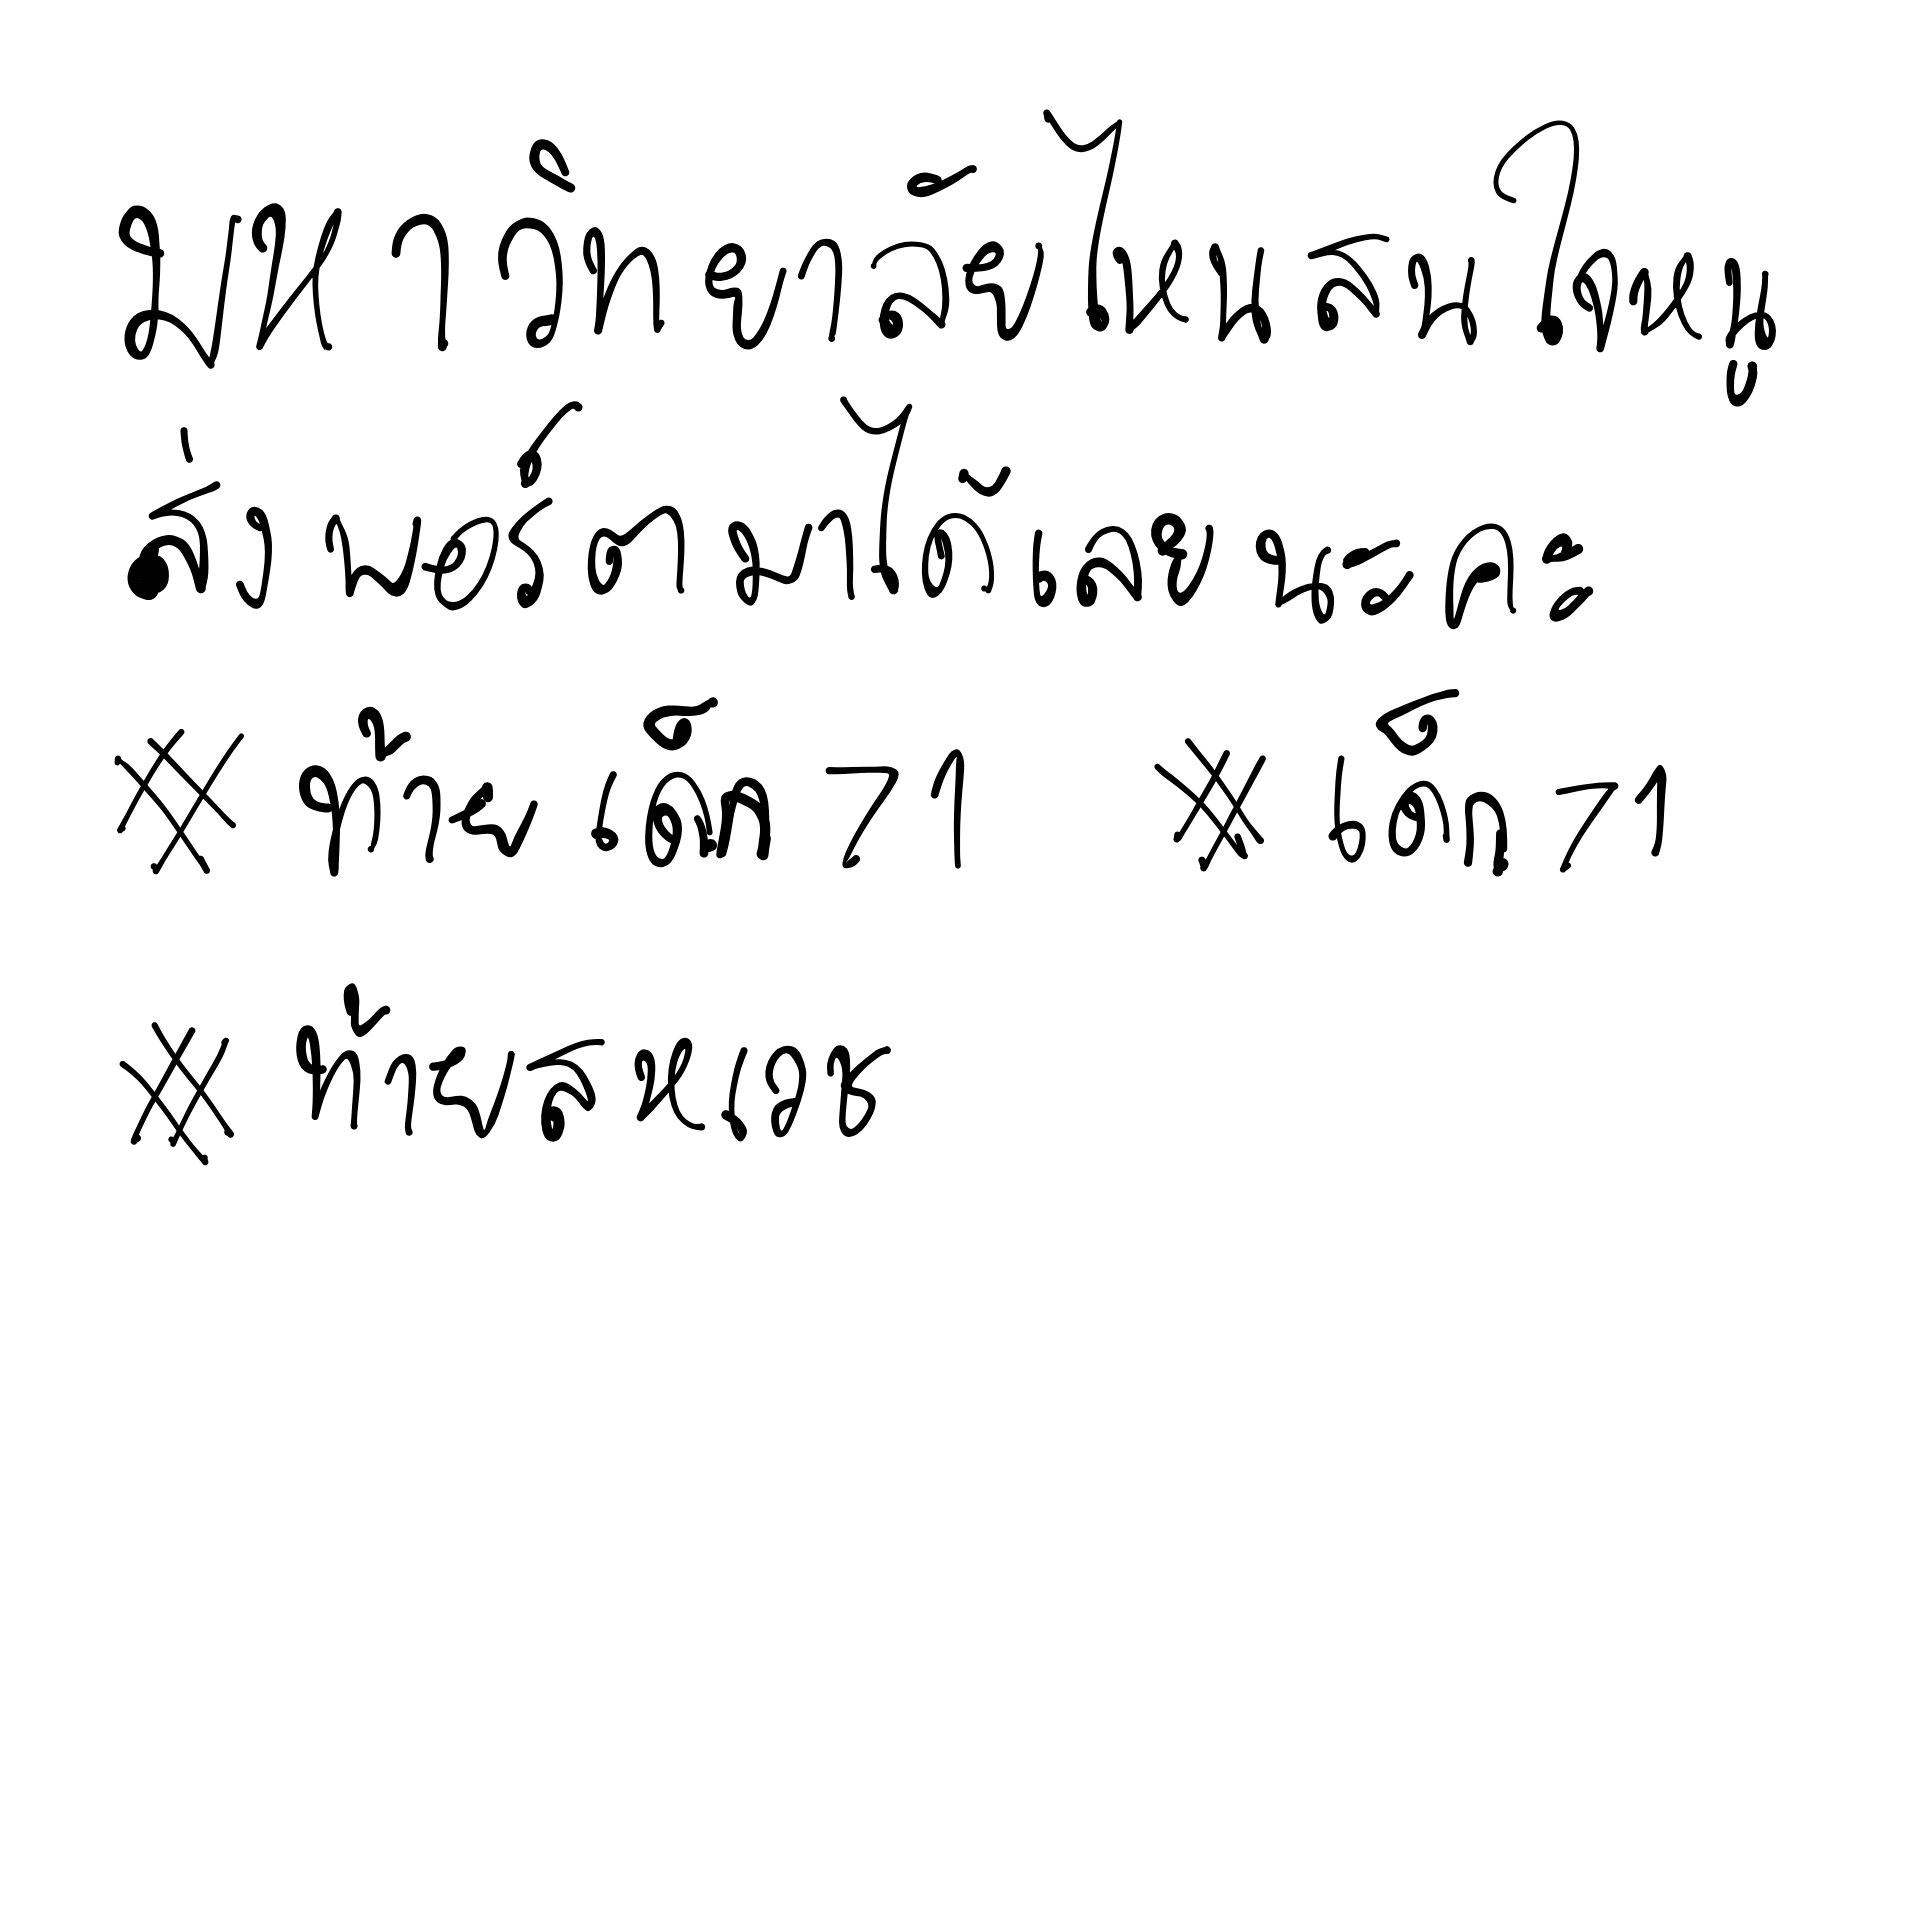 มหาวิทยาลัยไหนสนใจหนู
ส่งพอร์ตมาได้เลยนะคะ
#ท้ายเด็ก71 #เด็ก71
#ท้ายสหเวช